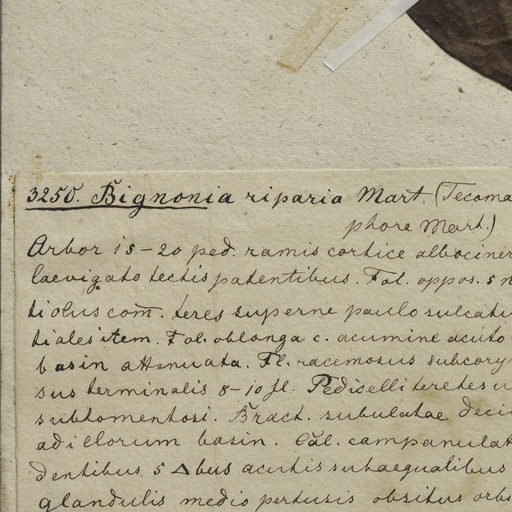 3250. Bignonia riparia Mart. (Tecoma
phora Mart.)
Arbor 15-20 ped. ramis cortice albociner
laevigato tectis patentibus. Fol. oppos. 5 n
tiolus com̄. teres superne paulo sulcatu
tiales item. Fol. oblonga c. acumine acuto
basin attenuata. Fl. racemosus subcory
sus terminalis 8-10 fl. Pedicelli teretes u
subtomentosi. Bract. subulatae deci
ad illorum basin. Cal. campanulat
dentibus 5 Δbus acutis subaequalibus
glandulis medio pertusis obsitus orb